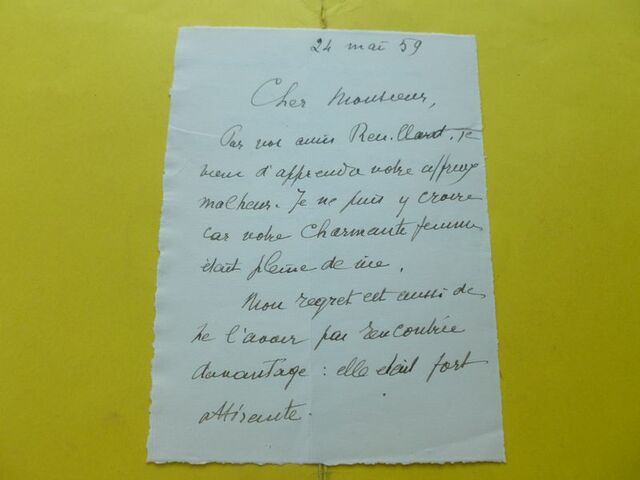 24 mai 59
Cher Monsieur,
Par vos amis je
viens d'apprendre votre affreux
malheur. Je ne puis y croire
car votre charmante femme
était pleine de vie.
Mon regret est aussi de
ne l'avoir pas rencontrée
davantage : elle était fort
attirante.